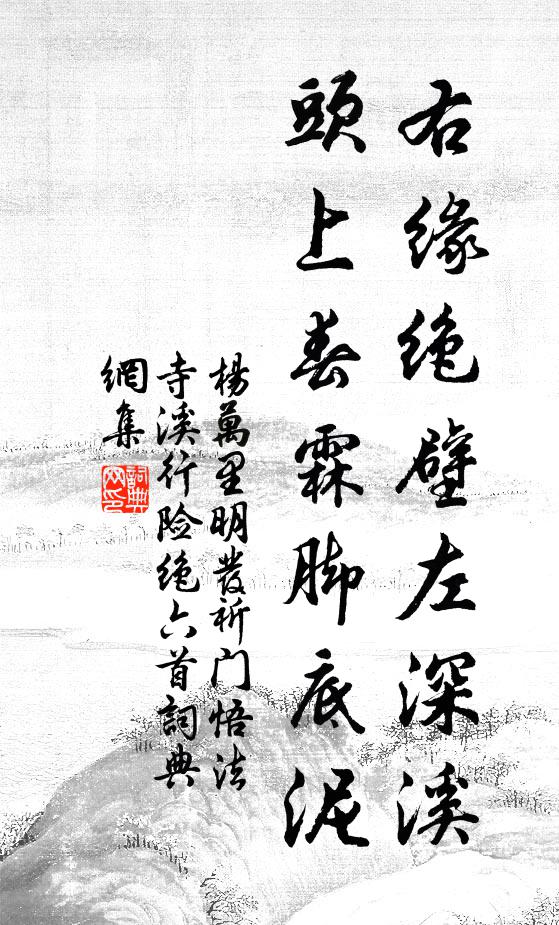 右缘绝壁左深溪
頭上春霖脚底泥
楊萬里明發祈门悟法
寺溪行险绝六首詞典
網集
詞典
网印